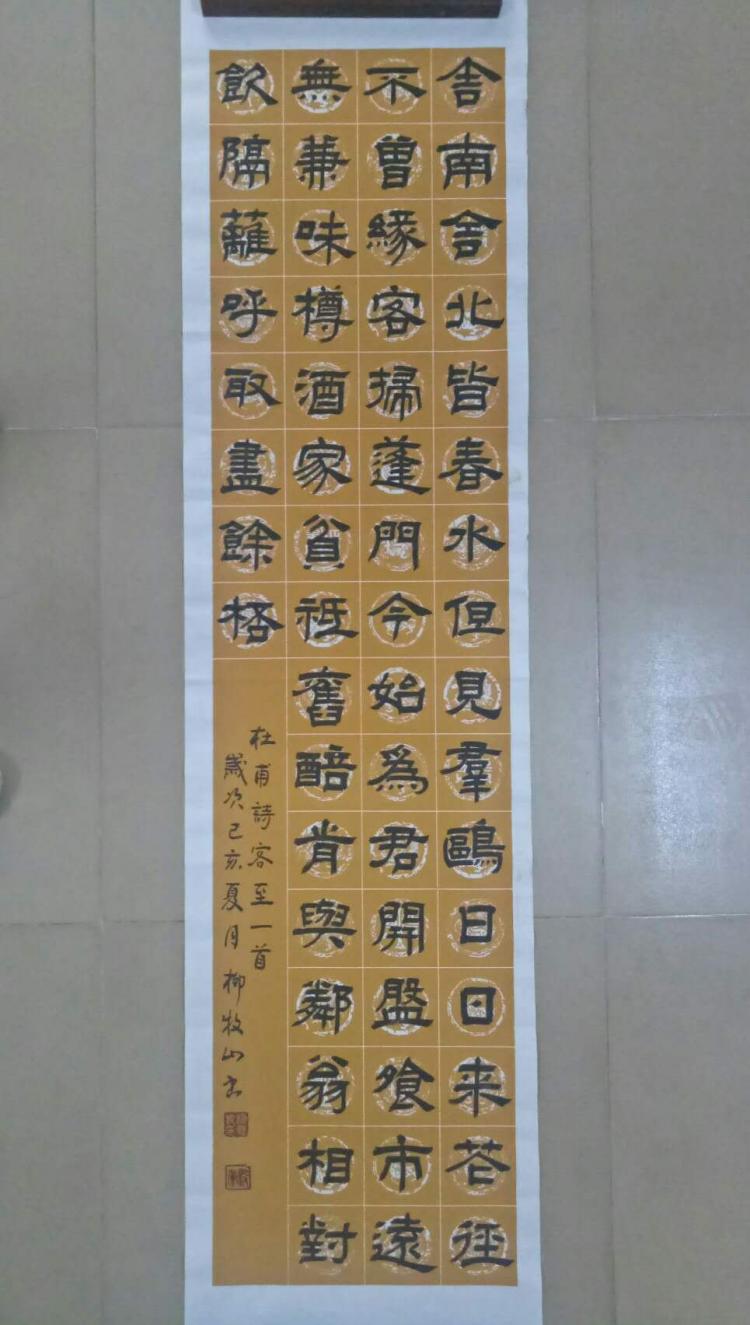 舍南舍北皆春水但見羣鷗日日来花徑
不曾緣客掃蓬門今始爲君開盤飧市遠
無兼味樽酒家貧祗舊醅肯與鄰翁相對
飲隔籬呼取盡餘桮
杜甫詩客至一首
歲次己亥夏月柳牧山书